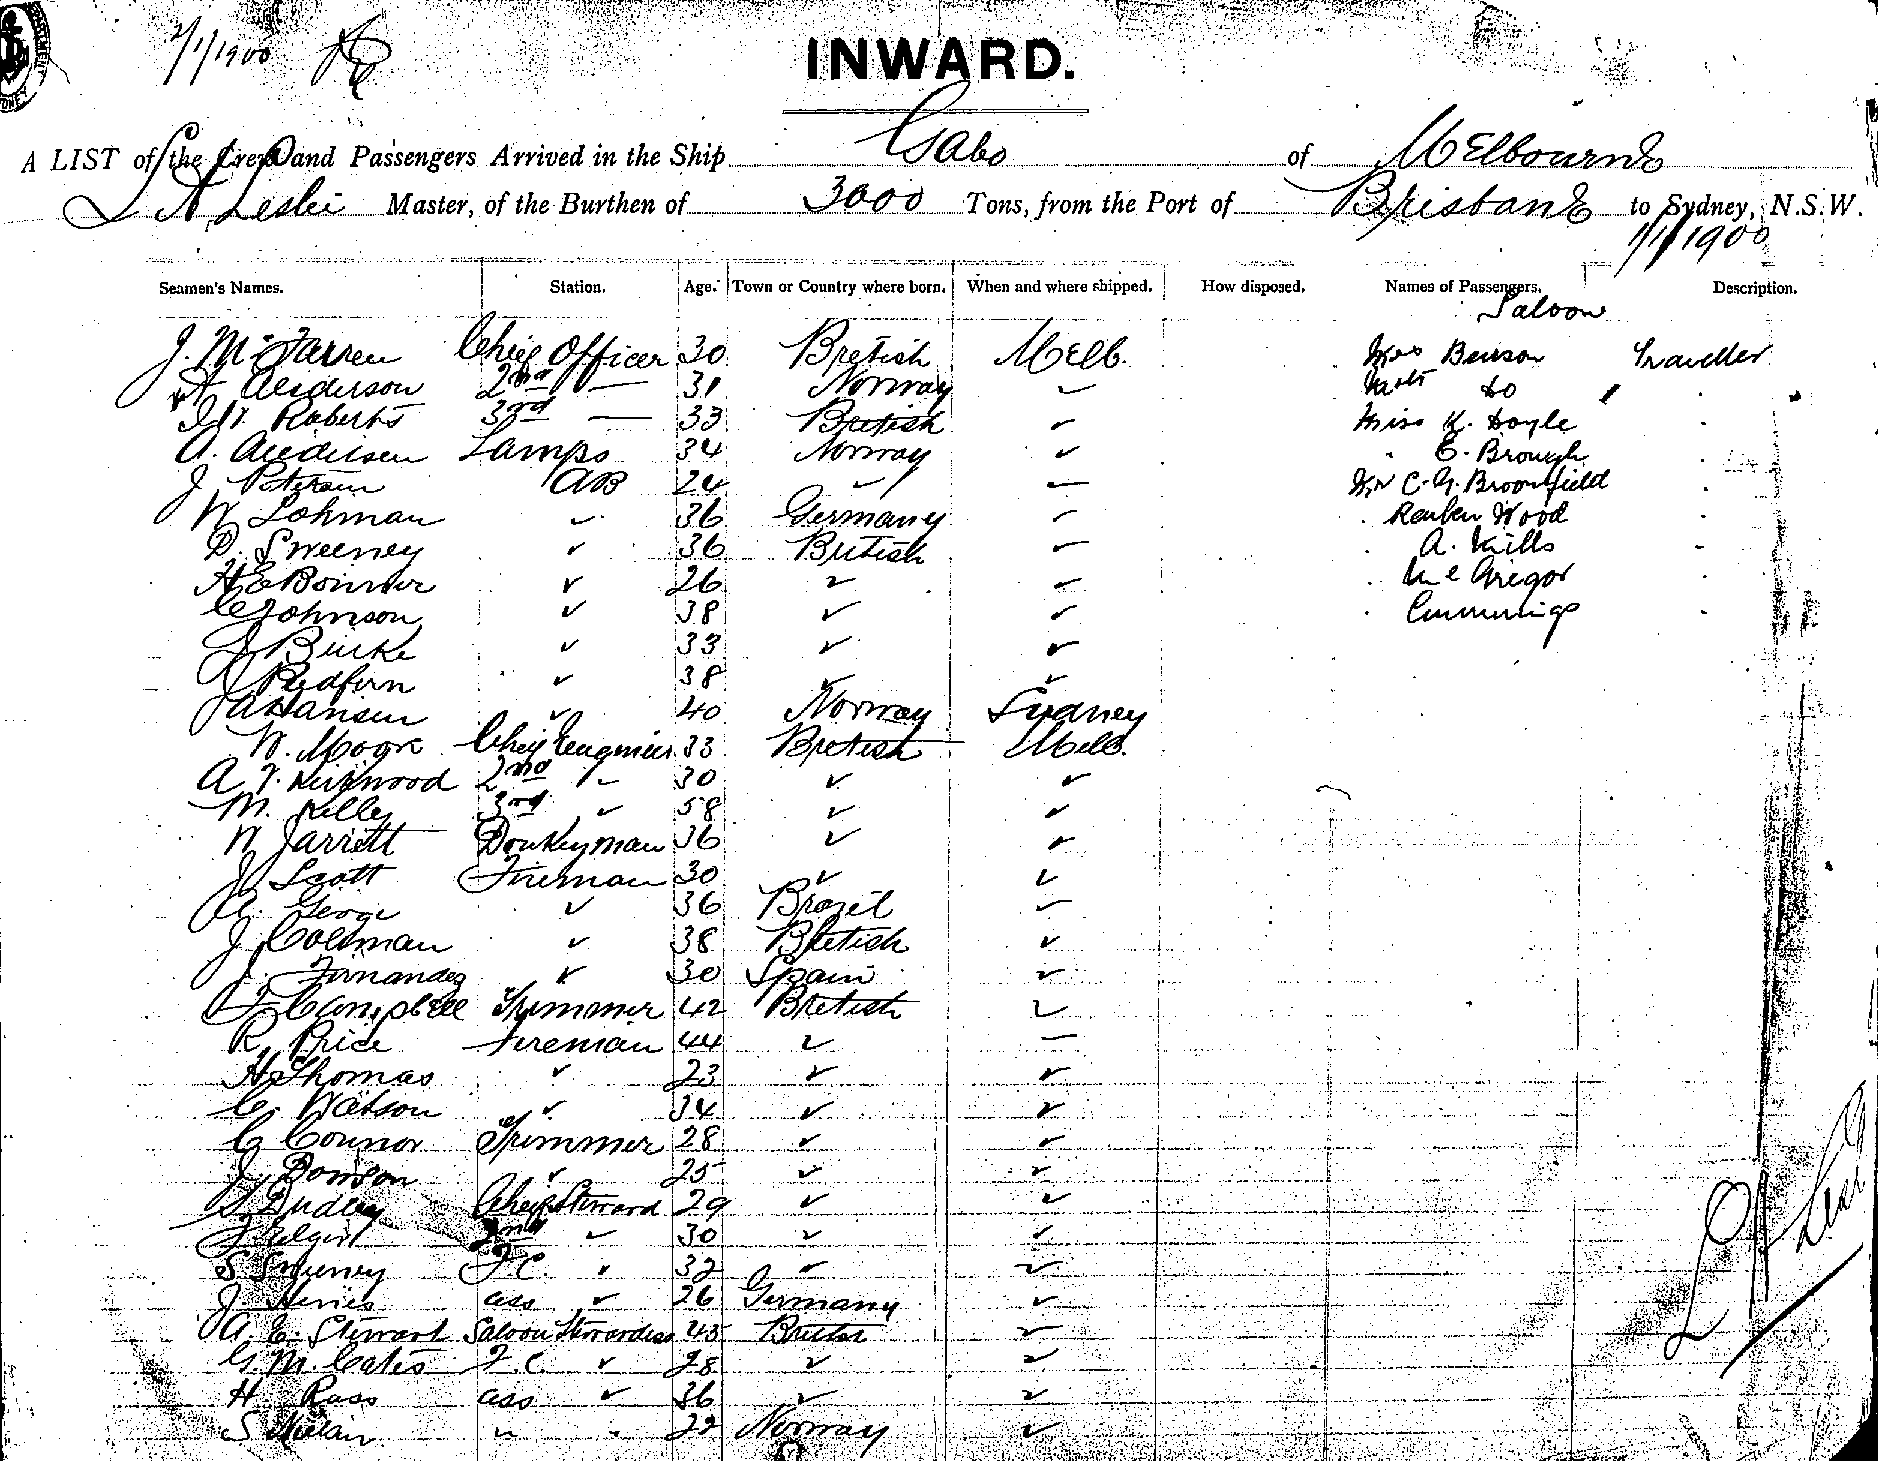 2/1/1900
INWARD.
A LIST of the Crew and Passengers Arrived in the Ship Gabo of Melbourne
Leslie Master, of the Burthen of 3000 Tons, from the Port of Brisbane to Sydney, N.S.W.
1/1/1900
Seamen's Names. Station. Age. Town or Country where born. When and where shipped. How disposed. Names of Passengers. Description.
Saloon
J. McFarren Chief Officer 30 British Melb. Mrs Benson Traveller
A Anderson 2nd — 31 Norway ✓ Do "
Roberts 3rd — 33 British ✓ Miss K. Doyle
A. Andersen Lamps 34 Norway ✓ " E. Brough
J Petersen AB 24 ✓ — Mr C. G. Broomfield
W Lohman ✓ 36 Germany ✓ Reuben Wood
D. Sweeney ✓ 36 British ✓ A. Mills
H E Bonner ✓ 26 ✓ ✓ McGregor
C Johnson ✓ 38 ✓ ✓ Cummings
J Burke ✓ 33 ✓ ✓
J Redfern ✓ 38 ✓ ✓
J A Hansen ✓ 40 Norway Sydney
W. Moore Chief Engineer 33 British Melb.
A. T. Kirkwood 2nd " 30 ✓ ✓
M. Kelley 3rd ✓ 58 ✓ ✓
W Jarrett Donkeyman 36 ✓ ✓
J Scott Fireman 30 ✓ ✓
George ✓ 36 Brazil ✓
J Coleman ✓ 38 British ✓
J. Fernandez ✓ 30 Spain ✓
F Campbell Trimmer 42 British ✓
R. Price Fireman 44 ✓ —
H Thomas ✓ 23 ✓ ✓
C. Watson ✓ 34 ✓ ✓
C Connor Trimmer 28 ✓ ✓
J. Dowson ✓ 25 ✓ ✓
Dudley Chief Steward 29 ✓ ✓
2nd ✓ 30 ✓ ✓
S Sweeney F.C. ✓ 32 ✓ ✓
J. ass ✓ 26 Germany ✓
A. E. Stewart Saloon Stewardess 45 ✓
G. M. Cates F.C. ✓ 28 ✓ ✓
H Rass ass ✓ 36 ✓ ✓
S " " 22 Norway ✓